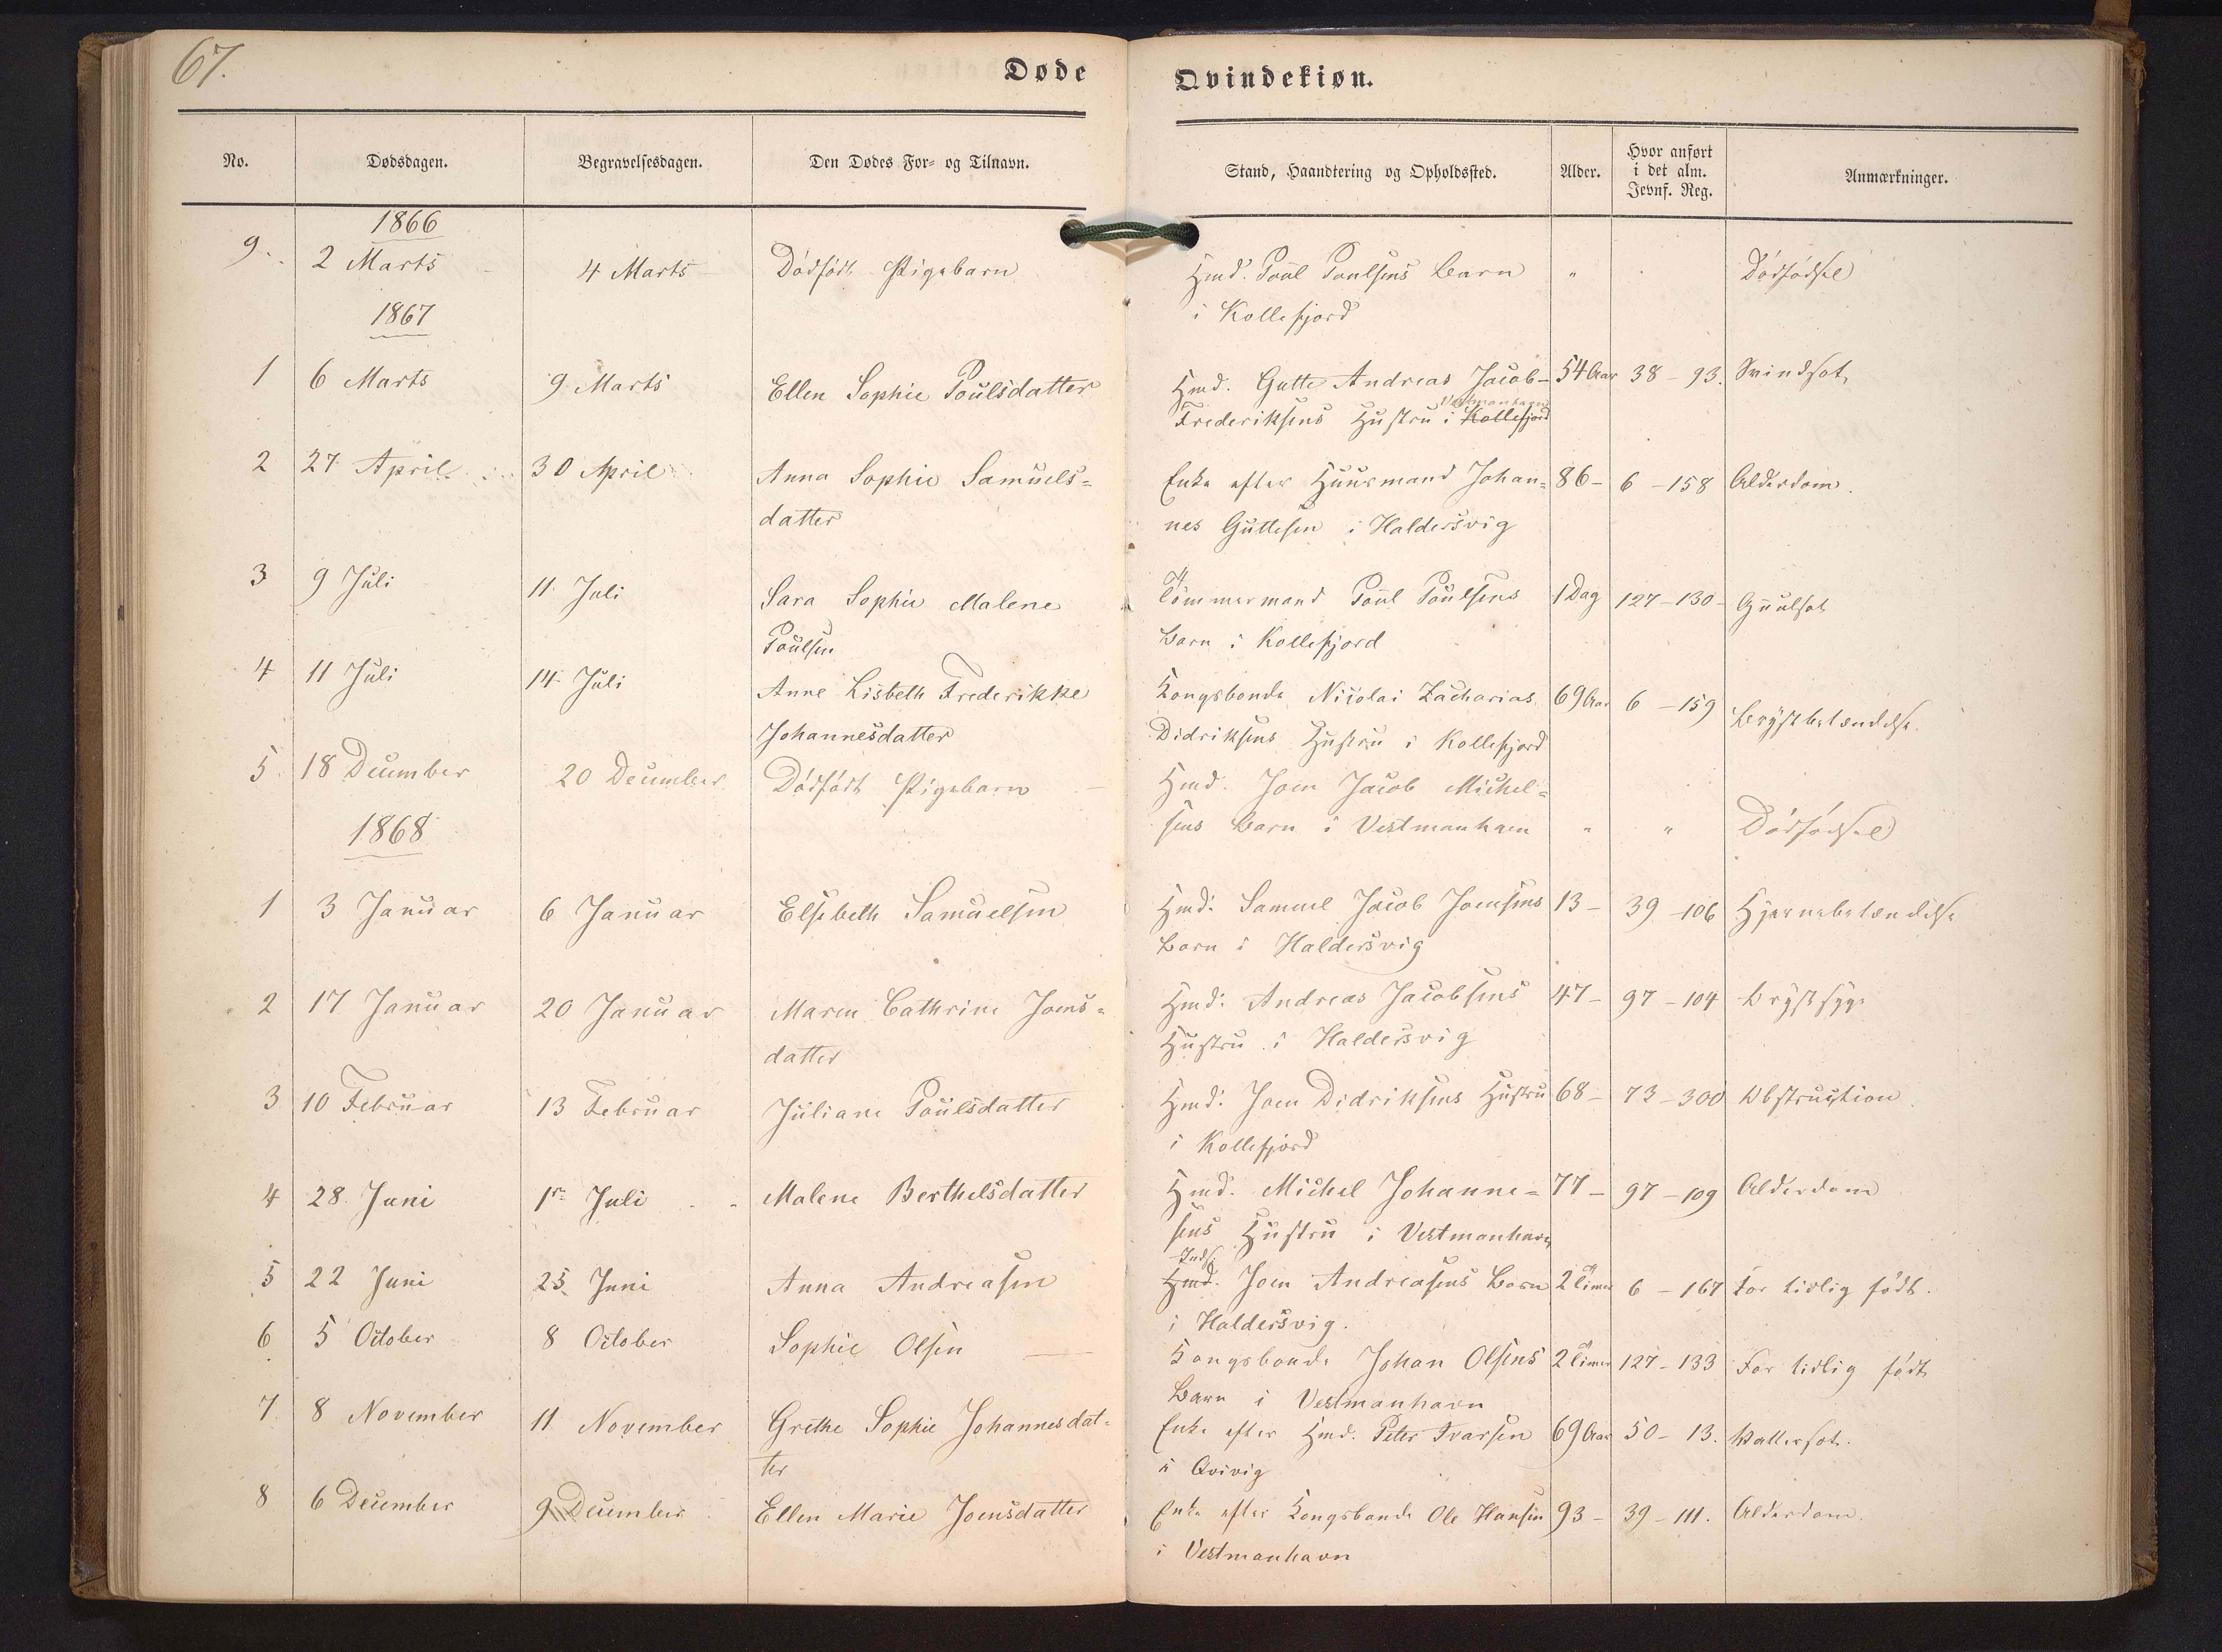 67.
Døde
Qvindekiøn.
No.
Dødsdagen.
Begravelsesdagen.
Den Dødes For- og Tilnavn.
Stand, Haandtering og Opholdssted.
Alder.
Hvor anført
i det alm.
Jevnf. Reg.
Anmærkninger.
1866
9. 2 Marts 4 Marts Dødfødt Pigebarn Hmd. Poul Poulsens Barn " Dødfødsel
i Kollefjord
1867
1 6 Marts 9 Marts Ellen Sophie Poulsdatter Hmd. Gutte Andreas Jacob- 54 Aar 38 - 93. Svindsot
Vestmanhavn
Frederiksens Hustru i Kollefjord
2 27 April 30 April Anna Sophie Samuels= Enke efter Huusmand Johan= 86 - 6 - 158 Alderdom.
datter nes Guttesen i Haldersvig
3 9 Juli 11 Juli Sara Sophie Malene Tömmermand Poul Poulsens 1 Dag 127 - 130 - Guulsot
Poulsen Barn i Kollefjord
4 11 Juli 14 Juli Anne Lisbeth Frederikke Kongsbonde Nicolai Zacharias 69 Aar 6 - 159 Brystbetændelse.
Johannesdatter Didriksens Hustru i Kollefjord
5 18 December 20 December Dødfødt Pigebarn Hmd. Joen Jacob Michel=
sens Barn i Vestmanhavn " " Dødfødsel
1868
1 3 Januar 6 Januar Elsebeth Samuelsen Hmd. Samuel Jacob Joensens 13 - 39 - 106 Hjernebetændelse
Barn i Haldersvig
2 17 Januar 20 Januar Maren Cathrine Joens= Hmd. Andreas Jacobsens 47 - 97 - 104 Brystsyge
datter Hustru i Haldersvig
3 10 Februar 13 Februar Juliane Poulsdatter Hmd. Joen Didriksens Hustru 68 - 73 - 300 Obstruction
i Kollefjord
4 28 Juni 1ste Juli Malene Berthelsdatter Hmd. Michel Johanne= 77 - 97 - 109 Alderdom
sens Hustru i Vestmanhavn
Inds.
5 22 Juni 25 Juni Anna Andreasen Hmd. Joen Andreasens Barn 2 Timer 6 - 167 For tidlig født.
i Haldersvig.
6 5 October 8 October Sophie Olsen Kongsbonde Johan Olsens 2 Timer 127 - 133 For tidlig født
Barn i Vestmanhavn
7 8 November 11 November Grethe Sophie Johannesdat= Enke efter Hmd. Peter Ivarsen 69 Aar 50 - 13. Vattersot.
ter i Qvivig
8 6 December 9 December Ellen Marie Joensdatter Enke efter Kongsbonde Ole Hansen 93 - 39 - 111. Alderdom.
i Vestmanhavn